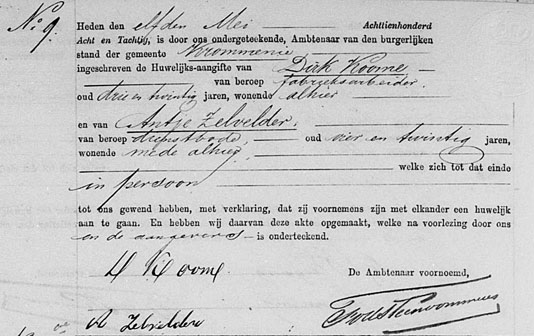 No 9.
Heden den elfden Mei Achttienhonderd
Acht en Tachtig, is door ons ondergeteekende, Ambtenaar van den burgerlijken
stand der gemeente Krommenie
ingeschreven de Huwelijks-aangifte van Dirk Koome
van beroep fabrieksarbeider,
oud drie en twintig jaren, wonende alhier
en van Antje Zelvelder,
van beroep dienstbode oud vier en twintig jaren,
wonende mede alhier,
welke zich tot dat einde
in persoon
tot ons gewend hebben, met verklaring, dat zij voornemens zijn met elkander een huwelijk
aan te gaan. En hebben wij daarvan deze akte opgemaakt, welke na voorlezing door ons
en de aangevers is onderteekend.
D Koome.
De Ambtenaar voornoemd,
A Zelvelder